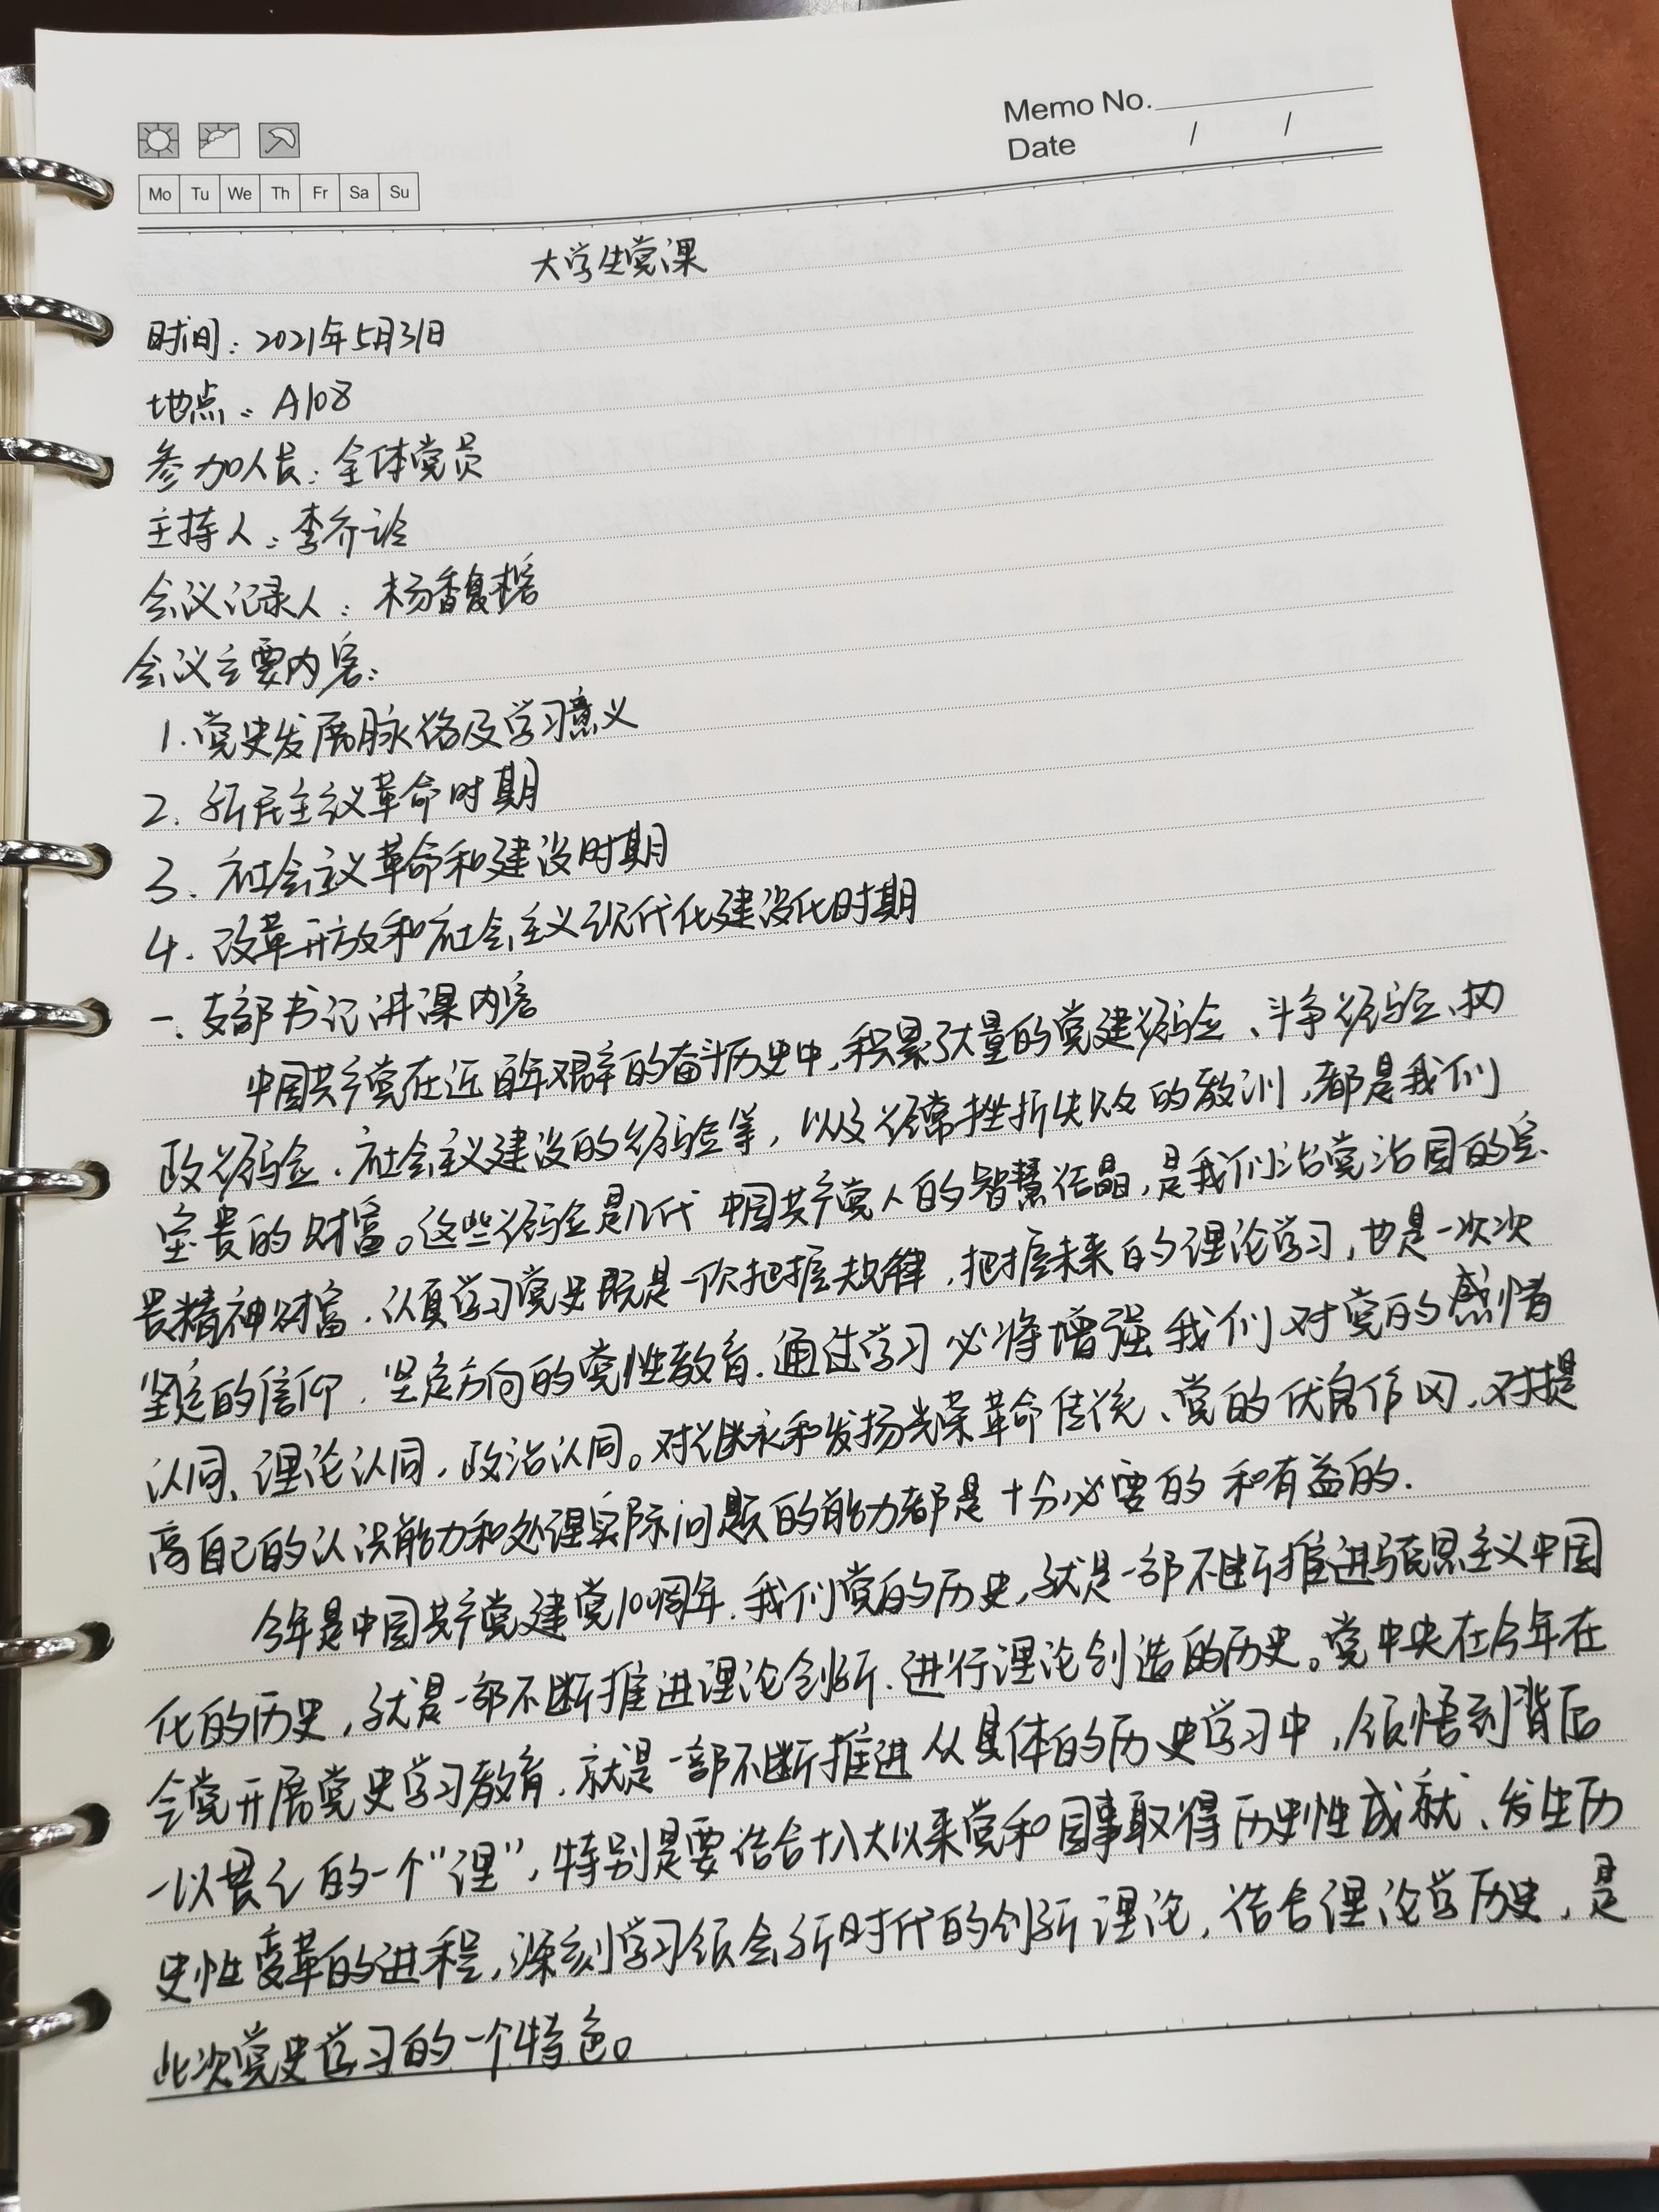 Memo No.
Date / /
Mo Tu We Th Fr Sa Su
大学生党课
时间：2021年5月31日
地点：A108
参加人员：全体党员
主持人：李乔
会议记录人：杨馥
会议主要内容：
1.党史发展脉络及学习意义
2.新民主义革命时期
3.社会主义革命和建设时期
4.改革开放和社会主义现代化建设化时期
一、支部书记讲课内容
中国共产党在近百年艰辛的奋斗历史中，积累了大量的党建经验、斗争经验、执
政经验、社会主义建设的经验等，以及经常挫折失败的教训，都是我们
宝贵的财富。这些经验是几代中国共产党人的智慧结晶，是我们治党治国的宝
贵精神财富，认真学习党史既是一次把握规律，把握未来的理论学习，也是一次次
坚定的信仰，坚定方向的党性教育，通过学习必将增强我们对党的感情
认同、理论认同，政治认同。对继承和发扬光荣革命传统、党的优良作风，对提
高自己的认识能力和处理实际问题的能力都是十分必要的和有益的.
今年是中国共产党建党100周年，我们党的历史，就是一部不断推进马克思主义中国
化的历史，就是一部不断推进理论创新、进行理论创造的历史。党中央在今年在
全党开展党史学习教育，就是一部不断推进从具体的历史学习中，领悟到背后
一以贯之的一个“理”，特别是要结合十八大以来党和国事取得历史性成就、发生历
史性变革的进程，深刻学习领会新时代的创新理论，结合理论学历史，是
此次党史学习的一个特色。